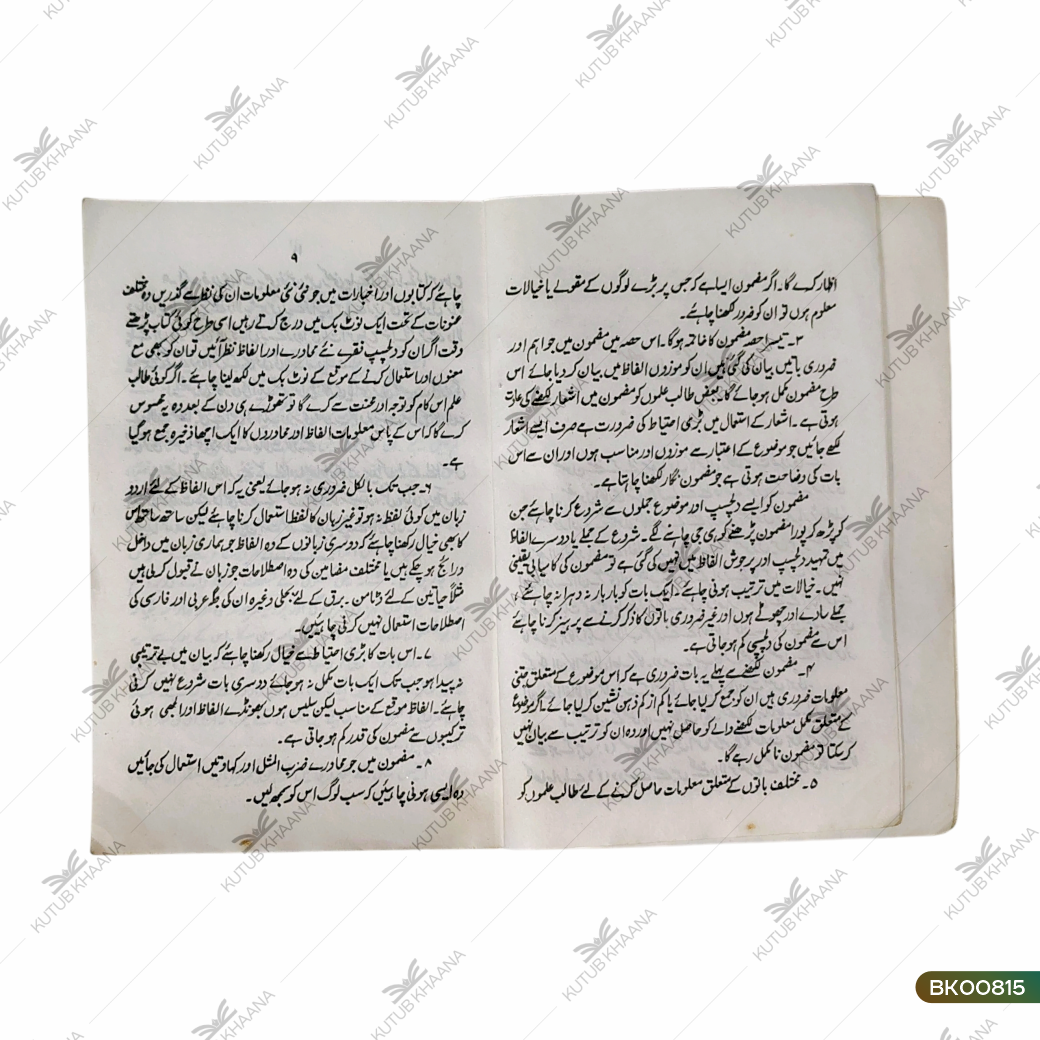 اظہار کرے گا۔ اگر مضمون ایسا ہے کہ جس پر بڑے لوگوں کے مقولے یا خیالات
معلوم ہوں تو ان کو ضرور لکھنا چاہئے۔
۳۔ تیسرا حصہ مضمون کا خاتمہ ہوگا۔ اس حصہ میں مضمون میں جو اہم اور
ضروری باتیں بیان کی گئی ہیں ان کو موزوں الفاظ میں بیان کر دیا جائے اس
طرح مضمون مکمل ہو جائے گا۔ بعض طالب علموں کو مضمون میں اشعار لکھنے کی عادت
ہوتی ہے۔ اشعار کے استعمال میں بڑی احتیاط کی ضرورت ہے صرف ایسے اشعار
لکھے جائیں جو موضوع کے اعتبار سے موزوں اور مناسب ہوں اور ان سے اس
بات کی وضاحت ہوتی ہے جو مضمون نگار لکھنا چاہتا ہے۔
مضمون کو ایسے دلچسپ اور موضوع جملوں سے شروع کرنا چاہئے جن
کو پڑھ کر پورا مضمون پڑھنے کو ہی جی چاہنے لگے۔ شروع کے جملے یا دوسرے الفاظ
میں تمہید دلچسپ اور پرجوش الفاظ میں نہیں کی گئی ہے تو مضمون کی کامیابی یقینی
نہیں۔ خیالات میں ترتیب ہونی چاہئے، ایک بات کو بار بار نہ دہرانہ چاہئے،
جملے سادے اور چھوٹے ہوں اور غیر ضروری باتوں کا ذکر کرنے سے پرہیز کرنا چاہئے
اس سے مضمون کی دلچسپی کم ہو جاتی ہے۔
۴۔ مضمون لکھنے سے پہلے یہ بات ضروری ہے کہ اس موضوع کے متعلق جتنی
معلومات ضروری ہیں ان کو جمع کر لیا جائے یا کم از کم ذہن نشین کر لیا جائے۔ اگر موضوع
کے متعلق مکمل معلومات لکھنے والے کو حاصل نہیں اور وہ ان کو ترتیب سے بیان نہیں
کر سکتا تو مضمون نامکمل رہے گا۔
۵۔ مختلف باتوں کے متعلق معلومات حاصل کرنے کے لئے طالب علموں کو
۹
چاہئے کہ کتابوں اور اخبارات میں جو نئی نئی معلومات ان کی نظر سے گذریں وہ مختلف
عنوانات کے تحت ایک نوٹ بک میں درج کرتے رہیں اسی طرح کوئی کتاب پڑھتے
وقت اگر ان کو دلچسپ فقرے نئے محاورے اور الفاظ نظر آئیں تو ان کو بھی مع
معنوں اور استعمال کرنے کے موقع کے نوٹ بک میں لکھ لینا چاہئے۔ اگر کوئی طالب
علم اس کام کو توجہ اور محنت سے کرے گا تو تھوڑے ہی دن کے بعد وہ یہ محسوس
کرے گا کہ اس کے پاس معلومات الفاظ اور محاوروں کا ایک اچھا ذخیرہ جمع ہو گیا
ہے۔
۶۔ جب تک بالکل ضروری نہ ہو جائے یعنی یہ کہ اس الفاظ کے لئے اردو
زبان میں کوئی لفظ نہ ہو تو غیر زبان کا لفظ استعمال کرنا چاہئے لیکن ساتھ ساتھ اس
کا بھی خیال رکھنا چاہئے کہ دوسری زبانوں کے وہ الفاظ جو ہماری زبان میں داخل
و رائج ہو چکے ہیں یا مختلف مضامین کی وہ اصطلاحات جو زبان نے قبول کر لی ہیں
مثلاً حیاتین کے لئے وٹامن۔ برق کے لئے بجلی وغیرہ ان کی جگہ عربی اور فارسی کی
اصطلاحات استعمال نہیں کرنی چاہئیں)۔
۷۔ اس بات کا بڑی احتیاط سے خیال رکھنا چاہئے کہ بیان میں بے ترتیبی
نہ پیدا ہو جب تک ایک بات مکمل نہ ہو جائے دوسری بات شروع نہیں کرنی
چاہئے۔ الفاظ موقع کے مناسب لیکن سلیس ہوں بھونڈے الفاظ اور الجھی ہوئی
ترکیبوں سے مضمون کی قدر کم ہو جاتی ہے۔
۸۔ مضمون میں جو محاورے ضرب المثل اور کہاوتیں استعمال کی جائیں
وہ ایسی ہونی چاہئیں کہ سب لوگ اس کو سمجھ لیں۔
KUTUB KHAANA
BK00815